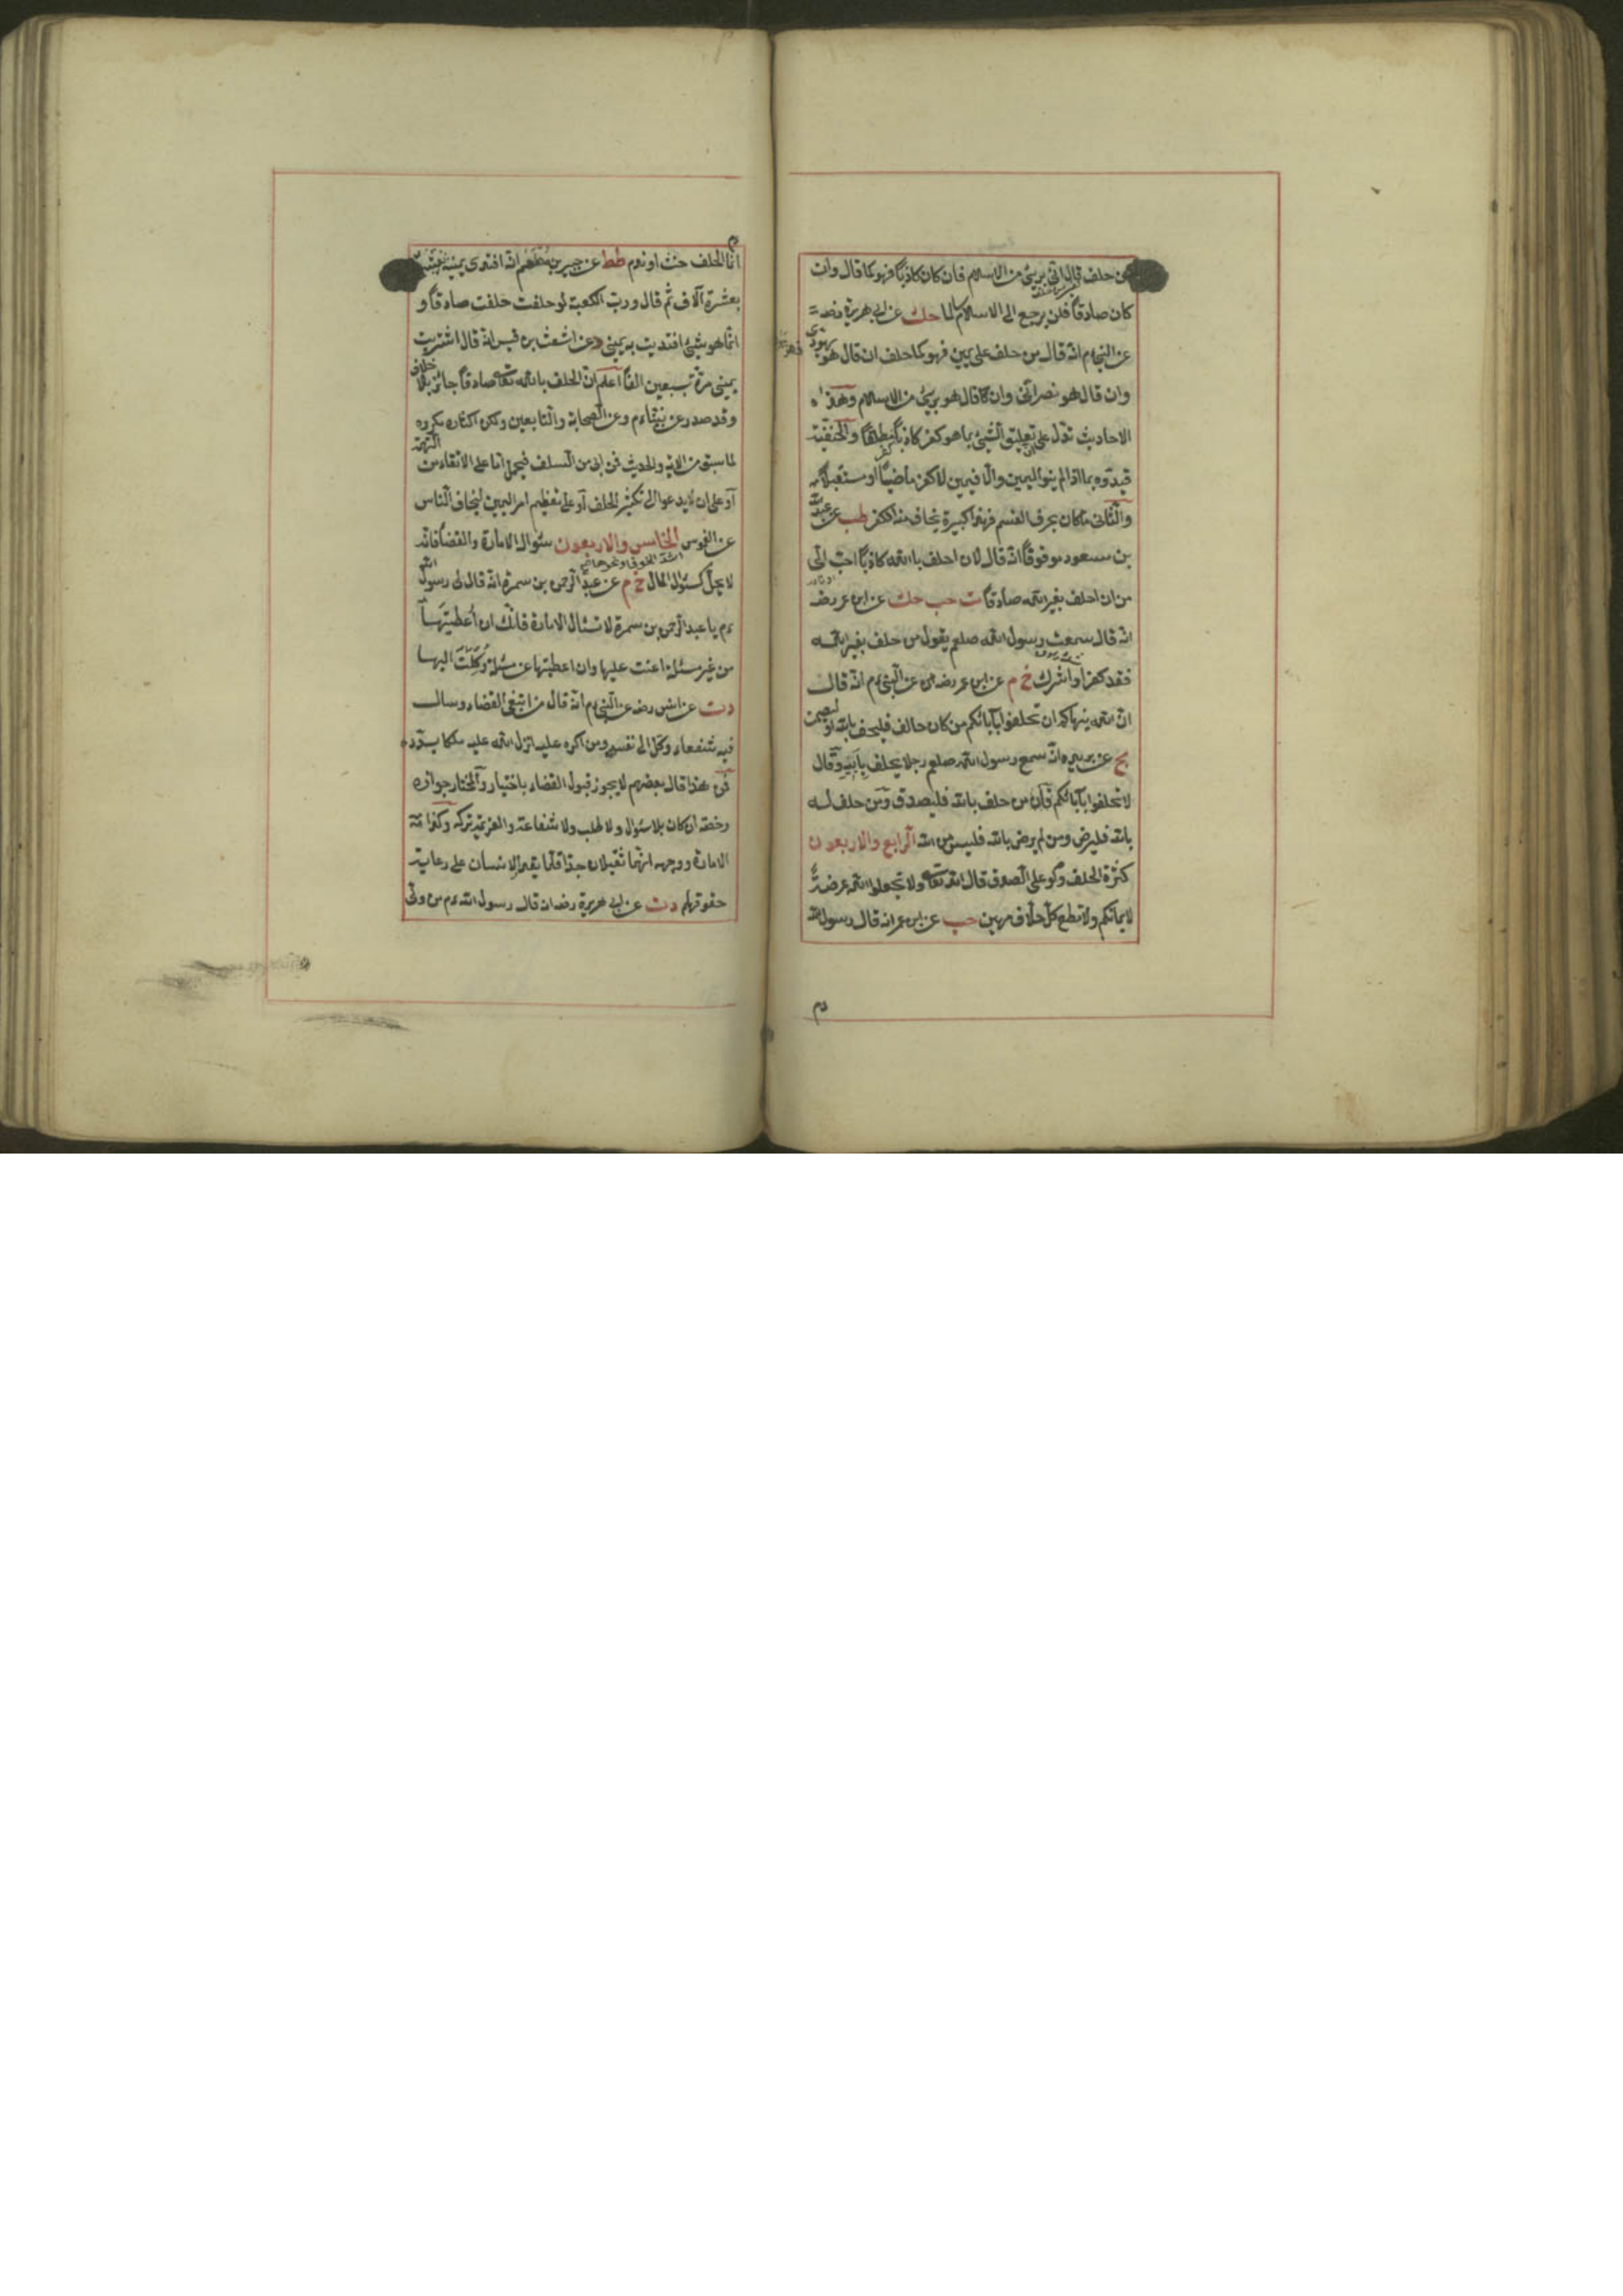 من حلف قال اني بريئ من الاسلام فان كان كاذبا فهو كما قال وان
كان صادقا فلن يرجع الى الاسلام سالما حك عن ابى هريرة رضه
عن النبى ءم انه قال من حلف على يمين فهو كما حلف ان قال هو يهودى
وان قال هو نصرانى وان كا قال هو بريئ من الاسلام وهذه
الاحاديث تدل على تعليق الشيئ بما هو كفر كاذبا مطلقا والحنفية
قيدوه بما اذا لم ينو اليمين والا فيمين لا كفر ماضيا او مستقبلا
والثانى ما كان بحرف القسم فهذا كبيرة يخاف منه الكفر طب عن عبد الله
بن مسعود موقوفا انه قال لان احلف بالله كاذبا احب الى
من ان احلف بغير الله صادقا ت حب حك عن ابن عمر رضه
انه قال سمعت رسول الله صلعم يقول من حلف بغير الله
فقد كفر او اشرك خ م عن ابن عمر رضه عن النبى ءم انه قال
ان الله ينهاكم ان تحلفوا بآبائكم من كان حالف فليحف بالله او ليصمت
مج عن بريده انه سمع رسول الله صلعم رجلا يحلف بابيه وقال
لا تحلفوا بآبائكم فان من حلف بالله فليصدق ومن حلف له
بالله فليرض ومن لم يرض بالله فليس من الله الرابع والاربعون
كثرة الحلف ولو على الصدق قال الله تعالى ولا تجعلوا الله عرضة
لايمانكم ولا تطع كل حلاف مهين حب عن ابن عمر انه قال رسول الله
ءم
ءم
انما الحلف حنث او ندم طط عن جبير بن مطعم انه افتدى يمينه
بعشرة آلاف ثم قال ورب الكعبة لو حلفت حلفت صادقا و
انما هو شيئ افتديت به يمينى وعن اشعث بن قيس انه قال اشتريت
يمينى مرة بسبعين الفا اعلم ان الحلف بالله تعالى صادقا جائز بلا خلاف
وقد صدر عن نبينا ءم وعن الصحابة والتابعين ولكن اكثاره مكروه
لما سبق من الاية والحديث فمن ابى من السلف فيحمل اما على الاتقاء من التهمة
او على ان لا يدعوا الى تكثير الحلف او على تعظيم امر اليمين ليخاف الناس
عن الغموس الخامس والاربعون سئوال الامارة والقضا فانه
لا يحل كسئول المال خ م عن عبد الرحمن بن سمرة انه قال لى رسول الله
ءم يا عبد الرحمن بن سمرة لا تسئال الامارة فانك ان اعطيتها
من غير مسئلة اعنت عليها وان اعطيتها عن مسئلة وكلت اليها
دت عن انس رضه عن النبى ءم انه قال من ابتغى القضاء وسال
فيه شفعاء وكل الى نفسه ومن اكره عليه انزل الله عليه ملكا يسدده
فمن هذا قال بعضهم لا يجوز قبول القضاء باختيار والمختار جوازه
رخصة ان كان بلا سئوال ولا طلب ولا شفاعة والعزيمة تركه وكذا
الامارة ووجهه انهما ثقيلان جدا قلما يقدر الانسان على رعاية
حقوقهم دت عن ابى هريرة رضه انه قال رسول الله ءم من ولى